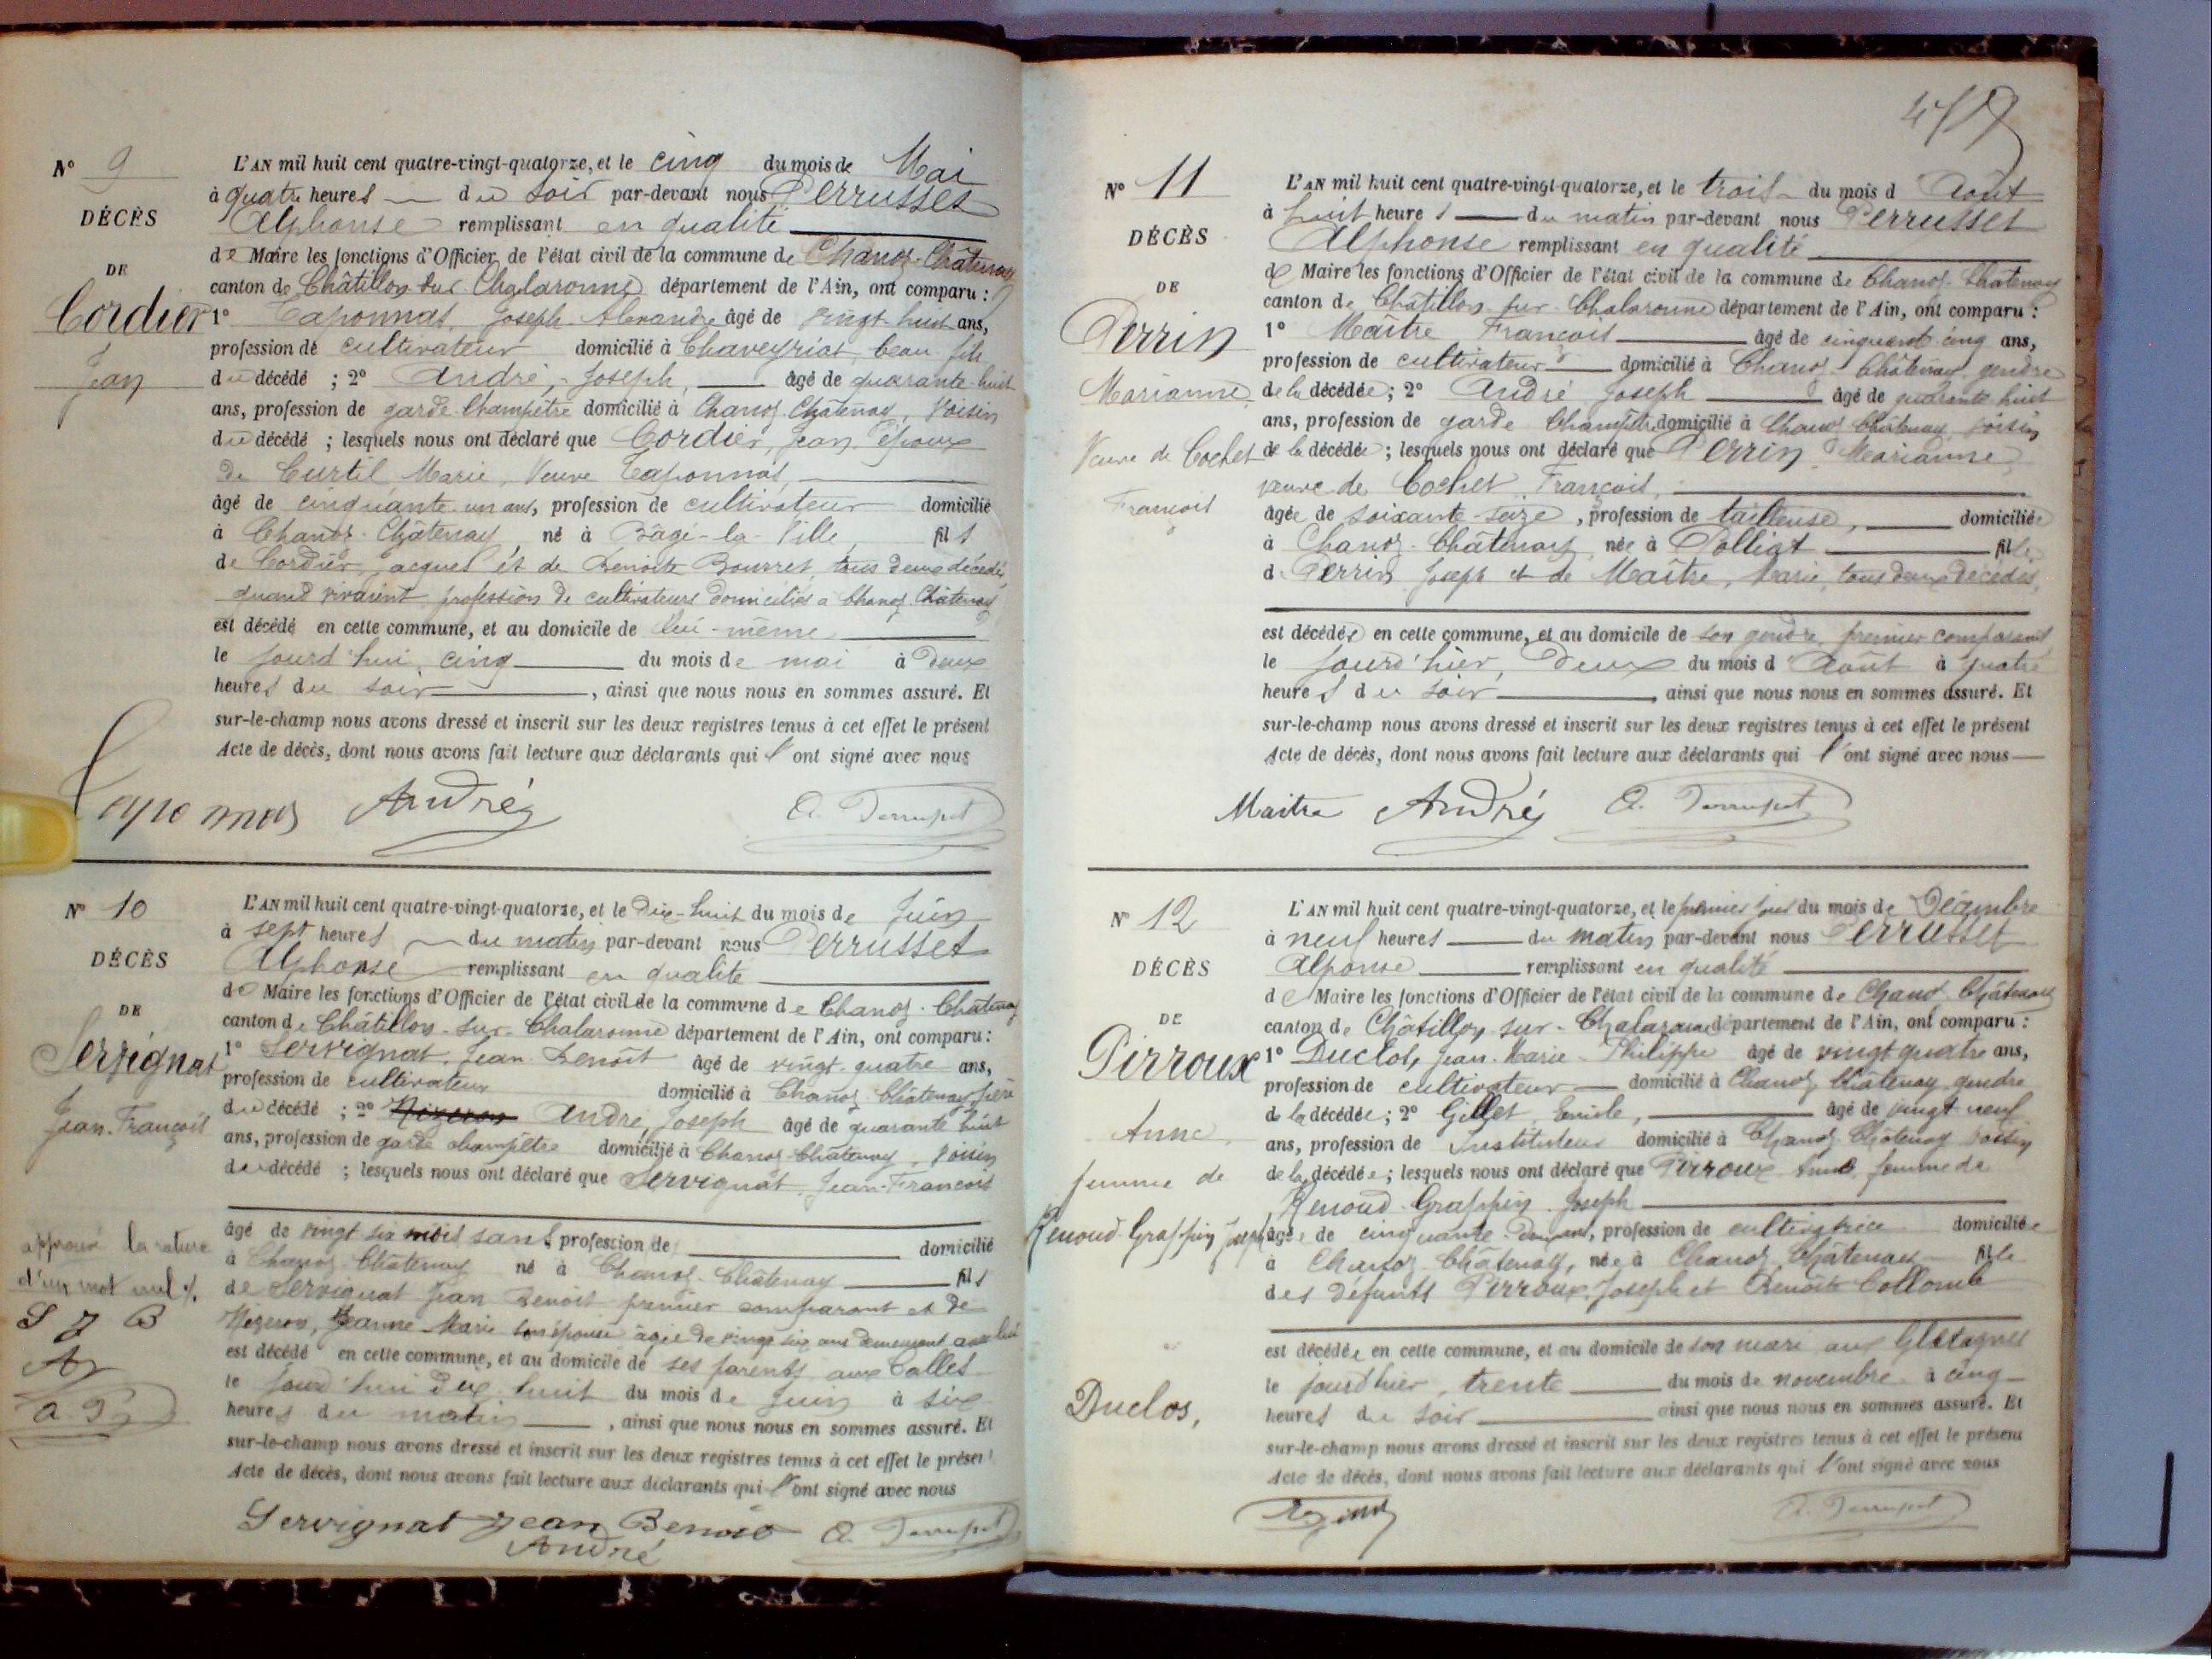 N° 9
DÉCÈS
DE
Cordier
Jean
L'AN mil huit cent quatre-vingt-quatorze, et le cinq du mois de Mai
à quatre heures du soir par-devant nous Perrusset
Alphonse remplissant en qualité
de Maire les fonctions d'Officier de l'état civil de la commune de Chanoz-Châtenay
canton de Châtillon sur Chalaronne département de l'Ain, ont comparu :
1° Taponnas, Joseph Alexandre âgé de vingt huit ans,
profession de cultivateur domicilié à Chaveyriat, beau fils
du décédé ; 2° André, Joseph, âgé de quarante huit
ans, profession de garde Champêtre domicilié à Chanoz Châtenay, voisin
du décédé ; lesquels nous ont déclaré que Cordier, Jean époux
de Curtil Marie, Veuve Taponnas,
âgé de cinquante un ans, profession de cultivateur domicilié
à Chanoz-Châtenay, né à Bâgé-la-Ville, fils
de Cordier, Jacques et de Benoite Bourret, tous deux décédés,
quand vivaient profession de cultivateurs domiciliés à Chanoz Châtenay
est décédé en cette commune, et au domicile de lui-même
le jourd'hui, cinq du mois de mai à deux
heures du soir, ainsi que nous nous en sommes assuré. Et
sur-le-champ nous avons dressé et inscrit sur les deux registres tenus à cet effet le présent
Acte de décès, dont nous avons fait lecture aux déclarants qui l'ont signé avec nous
Taponnas André A. Perrusset
N° 10
DÉCÈS
DE
Servignat
Jean-François
approuvé la rature
d'un mot nul
S J B
A
A P
L'AN mil huit cent quatre-vingt-quatorze, et le Dix-huit du mois de Juin
à sept heures du matin par-devant nous Perrusset
Alphonse remplissant en qualité
de Maire les fonctions d'Officier de l'état civil de la commune de Chanoz-Châtenay
canton de Châtillon-sur-Chalaronne département de l'Ain, ont comparu :
1° Servignat, Jean Benoît âgé de vingt-quatre ans,
profession de cultivateur domicilié à Chanoz Châtenay, père
du décédé ; 2° André, Joseph âgé de quarante huit
ans, profession de garde champêtre domicilié à Chanoz-Châtenay, voisin
du décédé ; lesquels nous ont déclaré que Servignat Jean-François
âgé de vingt six mois sans profession de domicilié
à Chanoz-Châtenay né à Chanoz-Châtenay fils
de Servignat Jean Benoit premier comparant et de
Nizeron, Jeanne Marie son épouse âgée de vingt six ans demeurant avec lui
est décédé en cette commune, et au domicile de ses parents aux
le jourd'hui dix huit du mois de Juin à six
heures du matin, ainsi que nous nous en sommes assuré. Et
sur-le-champ nous avons dressé et inscrit sur les deux registres tenus à cet effet le présent
Acte de décès, dont nous avons fait lecture aux déclarants qui l'ont signé avec nous
Servignat Jean Benoit A. Perrusset
André
N° 11
DÉCÈS
DE
Perrin
Marianne
Veuve de Cochet
François
L'AN mil huit cent quatre-vingt-quatorze, et le trois du mois d'Août
à huit heures du matin par-devant nous Perrusset
Alphonse remplissant en qualité
de Maire les fonctions d'Officier de l'état civil de la commune de Chanoz-Châtenay
canton de Châtillon sur Chalaronne département de l'Ain, ont comparu :
1° Maître François âgé de cinquante cinq ans,
profession de cultivateur domicilié à Chanoz Châtenay, gendre
de la décédée ; 2° André Joseph âgé de quarante huit
ans, profession de garde Champêtre domicilié à Chanoz Châtenay, voisin
de la décédée ; lesquels nous ont déclaré que Perrin, Marianne,
veuve de Cochet, François,
âgée de soixante-seize, profession de tailleuse, domiciliée
à Chanoz-Châtenay, née à Polliat fille
de Perrin Joseph et de Maître, Marie, tous deux décédés,
est décédée en cette commune, et au domicile de son gendre, premier comparant
le jourd'hier, deux du mois d'Août à quatre
heures du soir, ainsi que nous nous en sommes assuré. Et
sur-le-champ nous avons dressé et inscrit sur les deux registres tenus à cet effet le présent
Acte de décès, dont nous avons fait lecture aux déclarants qui l'ont signé avec nous
Maitre André A. Perrusset
N° 12
DÉCÈS
DE
Pirroux
Anne,
femme de
Renoud-Grappin Joseph
Duclos,
L'AN mil huit cent quatre-vingt-quatorze, et le premier jour du mois de Décembre
à neuf heures du matin par-devant nous Perrusset
Alphonse remplissant en qualité
de Maire les fonctions d'Officier de l'état civil de la commune de Chanoz Châtenay
canton de Châtillon sur-Chalaronne département de l'Ain, ont comparu :
1° Duclos, Jean-Marie-Philippe âgé de vingt quatre ans,
profession de cultivateur domicilié à Chanoz Châtenay gendre
de la décédée ; 2° Gillet Emile, âgé de vingt neuf
ans, profession de Instituteur domicilié à Chanoz Châtenay voisin
de la décédée ; lesquels nous ont déclaré que Pirroux Anne femme de
Renoud-Grappin Joseph
âgée de cinquante-deux ans, profession de cultivatrice domiciliée
à Chanoz Châtenay, née à Chanoz Châtenay fille
des défunts Pirroux Joseph et Benoîte Collomb
est décédée en cette commune, et au domicile de son mari aux
le jourd'hier, trente du mois de novembre à cinq
heures du soir ainsi que nous nous en sommes assuré. Et
sur-le-champ nous avons dressé et inscrit sur les deux registres tenus à cet effet le présent
Acte de décès, dont nous avons fait lecture aux déclarants qui l'ont signé avec nous
A. Perrusset